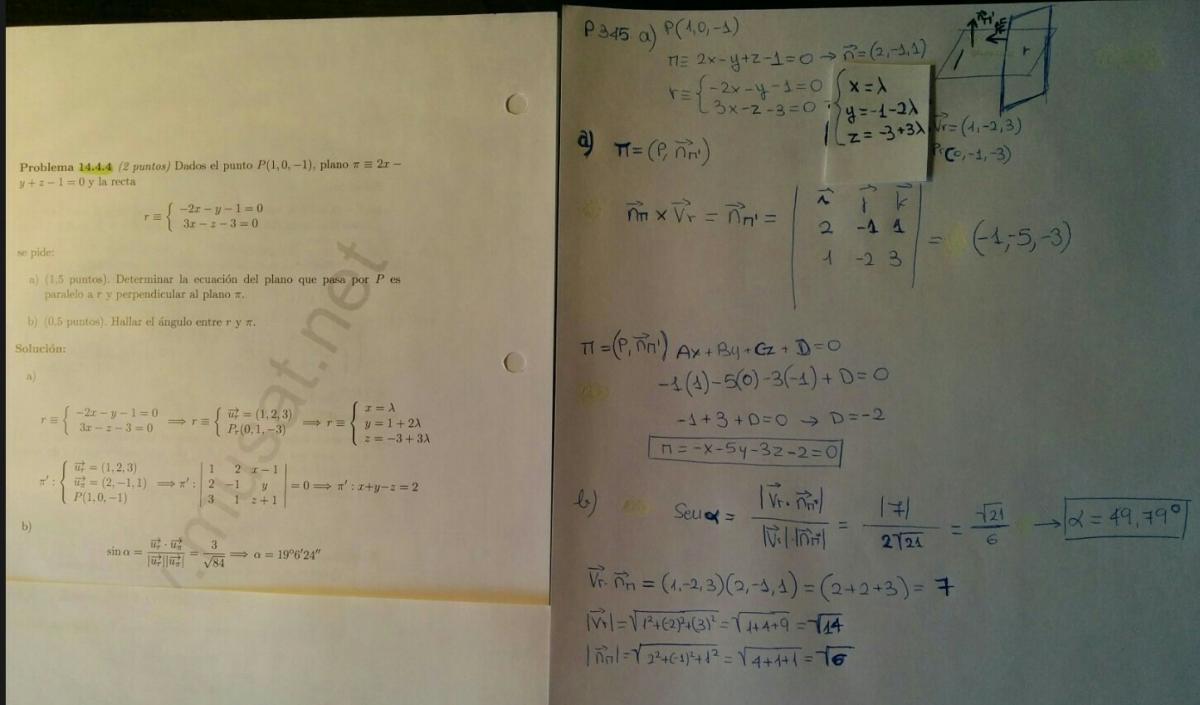 Problema 14.4.4 (2 puntos) Dados el punto P(1,0,−1), plano π ≡ 2x −
y + z − 1 = 0 y la recta
r ≡ { −2x − y − 1 = 0
3x − z − 3 = 0
se pide:
a) (1,5 puntos). Determinar la ecuación del plano que pasa por P es
paralelo a r y perpendicular al plano π.
b) (0,5 puntos). Hallar el ángulo entre r y π.
Solución:
a)
r ≡ { −2x − y − 1 = 0 ⟹ r ≡ { u⃗r = (1,2,3) ⟹ r ≡ { x = λ
3x − z − 3 = 0 Pr(0,1,−3) y = 1 + 2λ
z = −3 + 3λ
π′ : { u⃗r = (1,2,3) ⟹ π′ : | 1 2 x − 1 |
u⃗π = (2,−1,1) | 2 −1 y | = 0 ⟹ π′ : x+y−z = 2
P(1,0,−1) | 3 1 z + 1 |
b)
sin α = u⃗r · u⃗π / |u⃗r||u⃗π| = 3/√84 ⟹ α = 19°6′24″
.musat.net
P345 a) P(1,0,-1)
π≡ 2x-y+z-1=0 → n⃗=(2,-1,1)
r≡ { -2x-y-1=0
3x-z-3=0
{ x=λ
y=-1-2λ
z=-3+3λ
V⃗r=(1,-2,3)
Pr(0,-1,-3)
n⃗π'
r
a) π=(P, n⃗π')
n⃗π × V⃗r = n⃗π' = | i⃗ j⃗ k⃗ |
| 2 -1 1 | = (-1,-5,-3)
| 1 -2 3 |
π=(P, n⃗π') Ax+By+Cz+D=0
-1(1)-5(0)-3(-1)+D=0
-1+3+D=0 → D=-2
π=-x-5y-3z-2=0
b) Sen α = |V⃗r·n⃗π'| / |V⃗r|·|n⃗π'| = |7| / 2√21 = √21 / 6 → α=49,79º
V⃗r·n⃗π = (1,-2,3)(2,-1,1) = (2+2+3) = 7
|V⃗r|=√1²+(-2)²+(3)² = √1+4+9 = √14
|n⃗π|=√2²+(-1)²+1² = √4+1+1 = √6